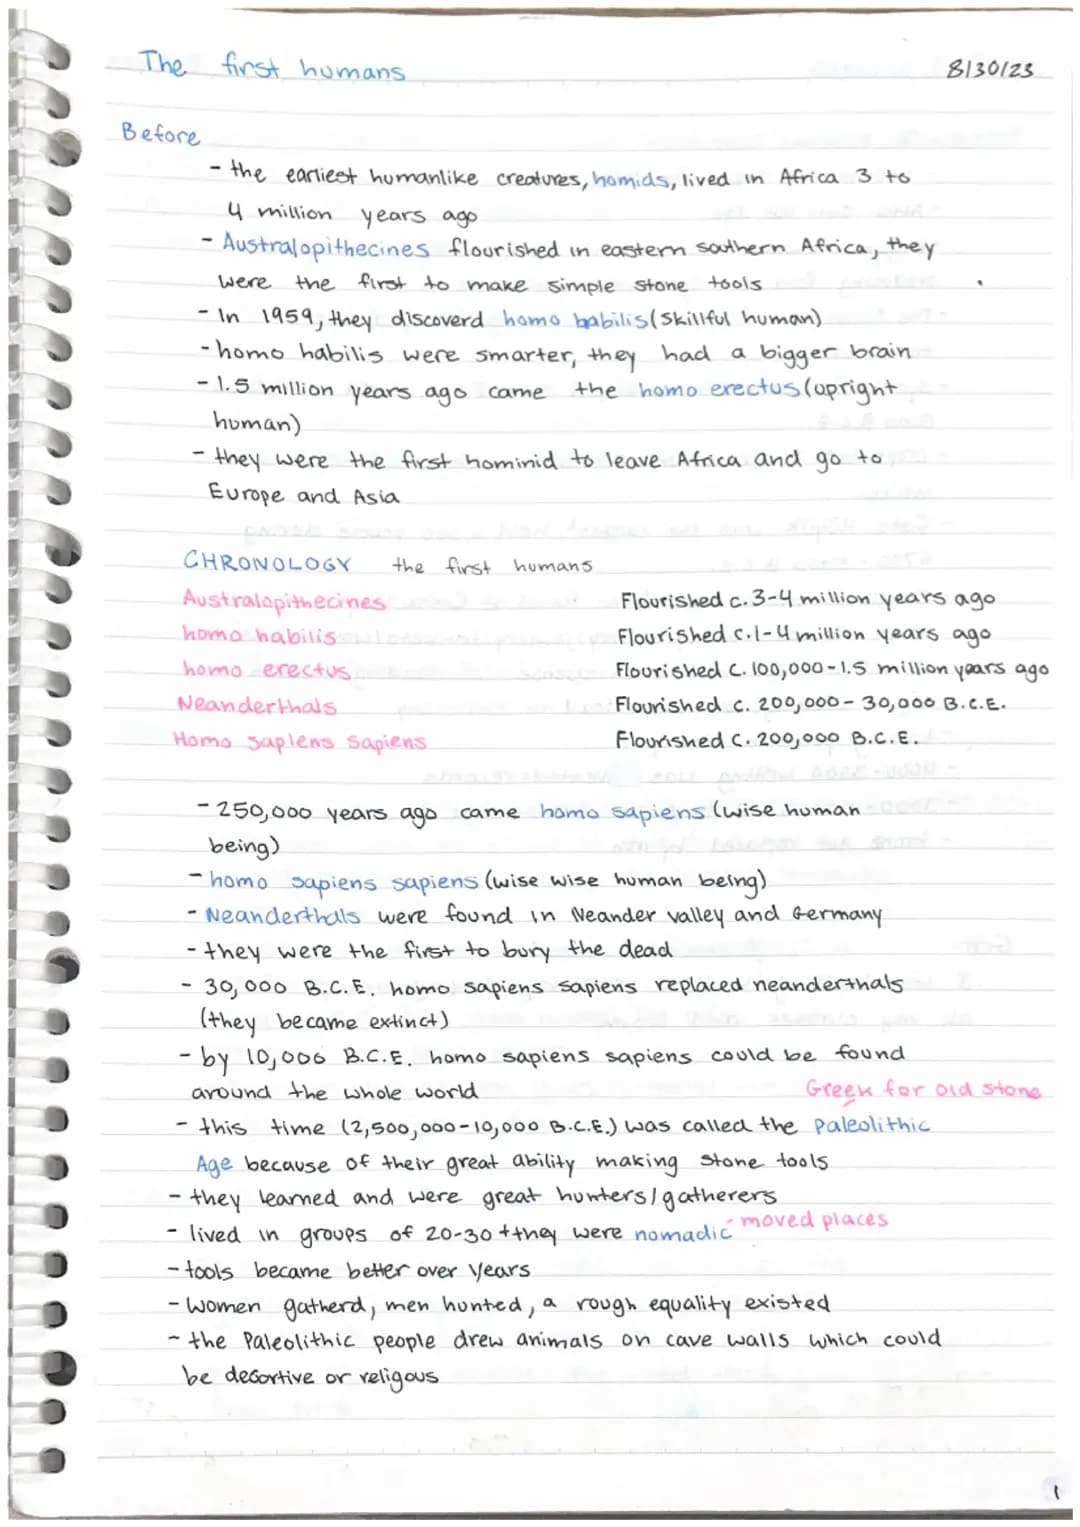 The first humans 8/30/23
Before
- the earliest humanlike creatures, homids, lived in Africa 3 to
4 million years ago
- Australopithecines flourished in eastern southern Africa, they
were the first to make simple stone tools
- In 1959, they discoverd homo babilis (skillful human)
- homo habilis were smarter, they had a bigger brain
- 1.5 million years ago came the homo erectus (upright
human)
- they were the first hominid to leave Africa and go to
Europe and Asia
CHRONOLOGY the first humans
Australopithecines Flourished c. 3-4 million years ago
homo habilis Flourished c. 1-4 million years ago
homo erectus Flourished c. 100,000-1.5 million years ago
Neanderthals Flourished c. 200,000-30,000 B.C.E.
Homo saplens Sapiens Flourished C. 200,000 B.C.E.
- 250,000 years ago came homo sapiens (wise human
being)
- homo sapiens sapiens (wise wise human being)
- Neanderthals were found in Neander valley and Germany
- they were the first to bury the dead
- 30,000 B.C.E. homo sapiens sapiens replaced neanderthals
(they became extinct)
- by 10,000 B.C.E. homo sapiens sapiens could be found
around the whole world
Greek for old stone
- this time (2,500,000-10,000 B.C.E.) was called the Paleolithic
Age because of their great ability making stone tools
- they learned and were great hunters/gatherers
- lived in groups of 20-30 + they were nomadic - moved places
- tools became better over years
- women gatherd, men hunted, a rough equality existed
- the Paleolithic people drew animals on cave walls which could
be decortive or religous
1